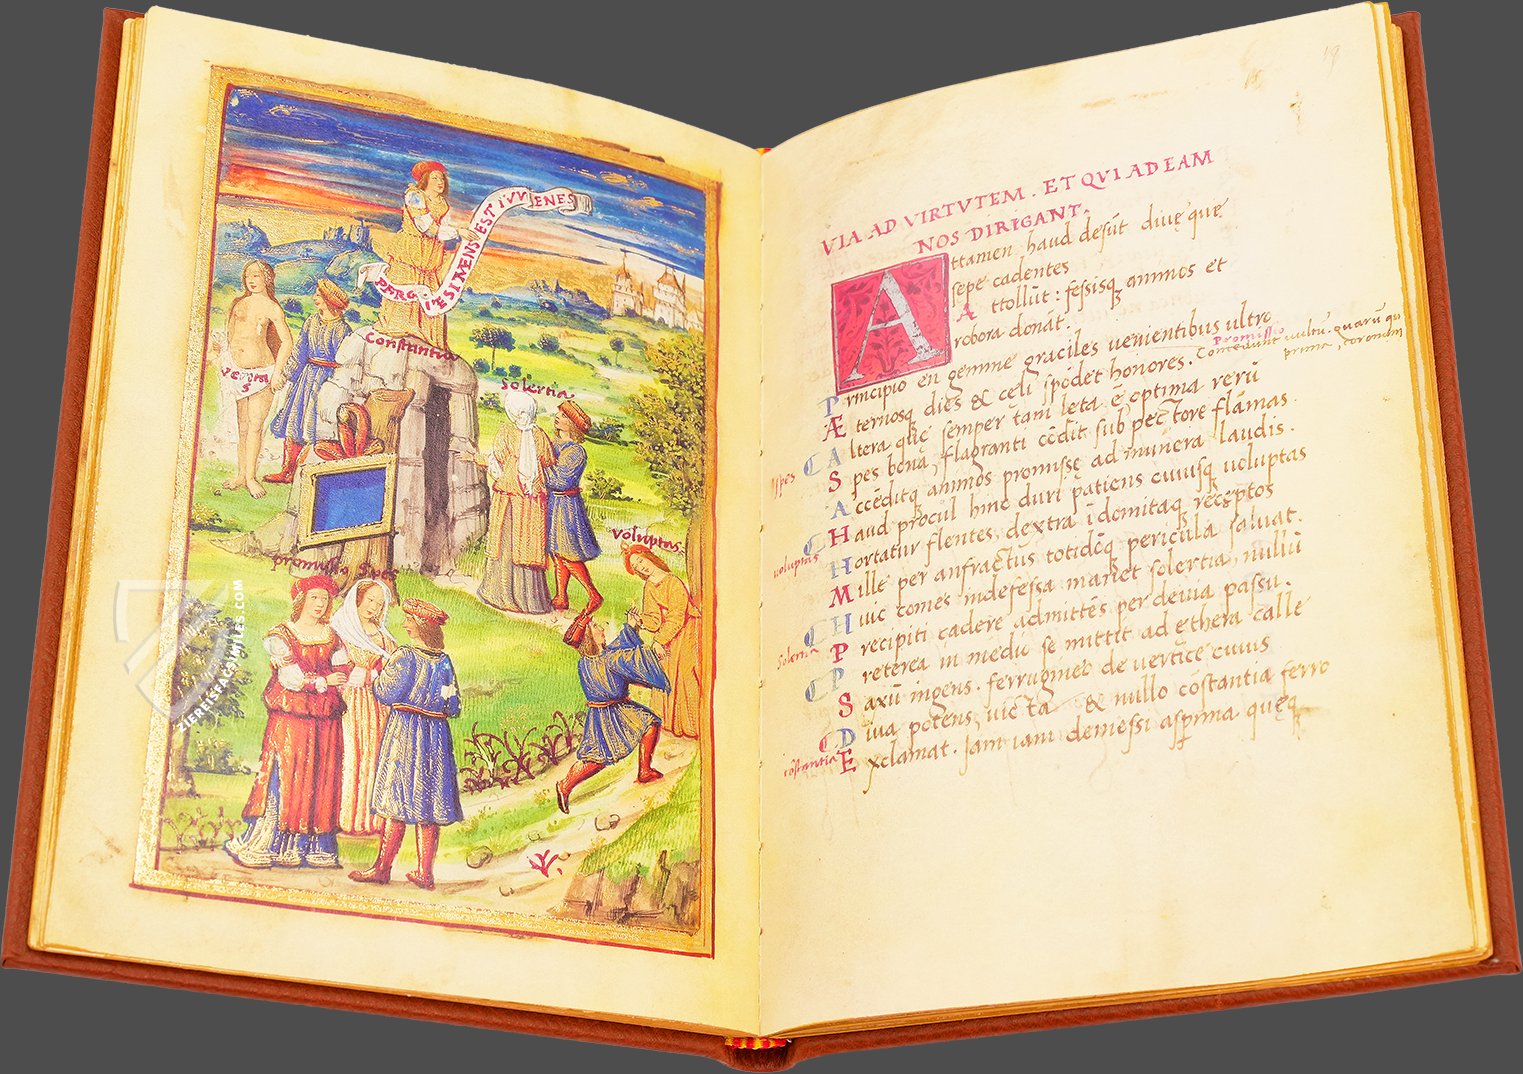 PERGITE SI MENS EST IVVENES
Constantia
Solertia
voluptas
promissio Spes
ZIEREISFACSIMILES.COM
19
VIA AD VIRTVTEM . ET QVI AD EAM
NOS DIRIGANT.
Attamen haud desūt diuę quę
sepe cadentes
Attollūt : fessisq animos et
robora donāt.
Principio en gemine graciles uenientibus ultro
Æternosq dies & celi spōdet honores.
promissio
Altera quę semper tam leta ē optima rerū
Spes bona, flagranti cōdit sub pectore flāmas.
Spes
Accēditq animos promissę ad munera laudis.
Haud procul hinc duri patiens cuiusq uoluptas
Hortatur flentes dextra īdomitaq receptos
voluptas
Mille per anfractus totidēq pericula saluat.
Huic comes indefessa manet solertia, nullū
Precipiti cadere admittēs per deuia passu.
Solertia
Preterea in mediū se mittit ad ęthera calle
Saxū ingens . ferrugineo de uertice cuius
Diua potens, uicta & nullo cōstantia ferro
cōstantia
Exclamat . Iam iam demessi aspīma quęq